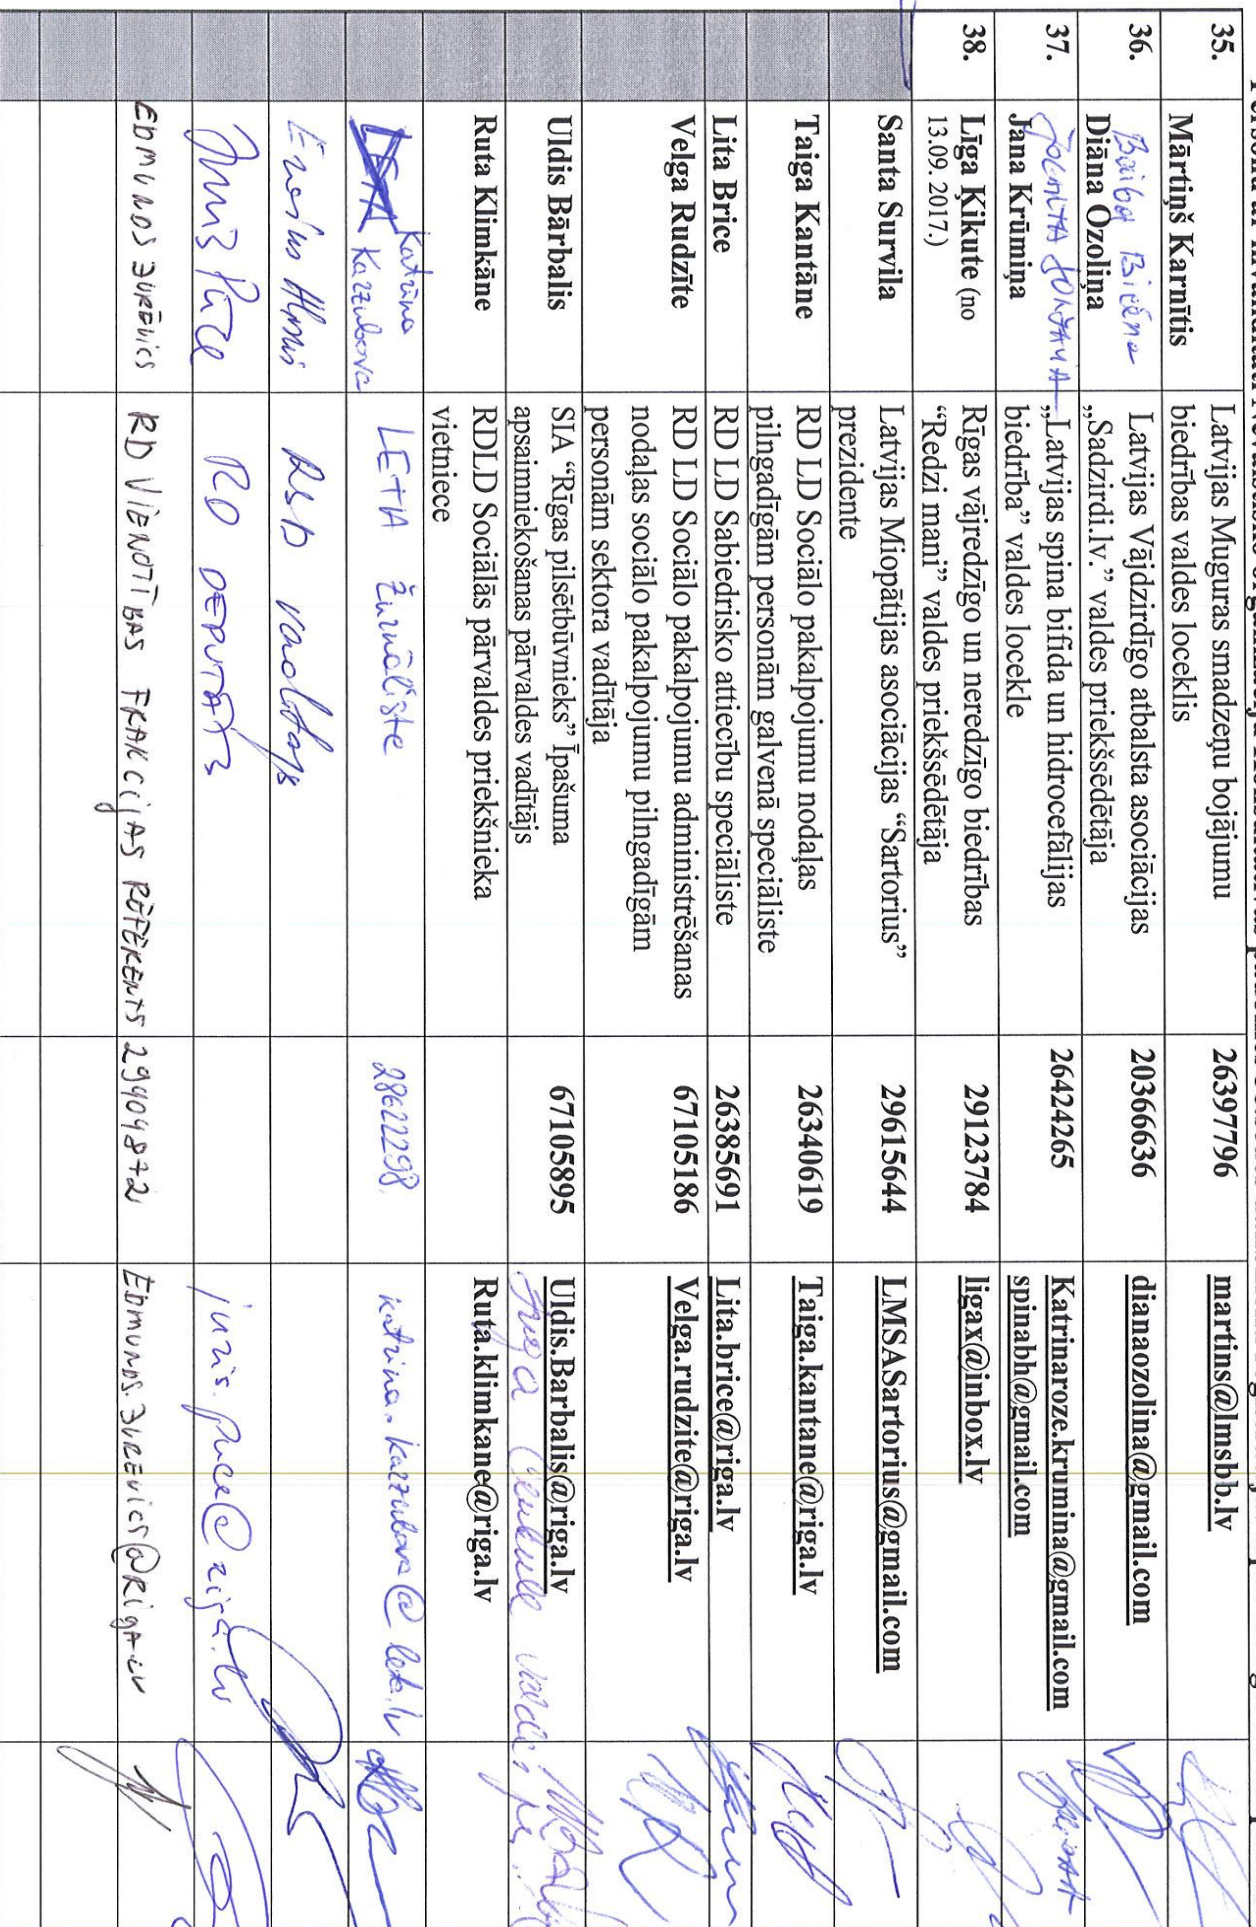 35.
Mārtiņš Karnītis
Latvijas Muguras smadzeņu bojājumu
biedrības valdes loceklis
26397796
martins@lmsbb.lv
36.
Baiba
Diāna Ozoliņa
Latvijas Vājdzirdīgo atbalsta asociācijas
„Sadzirdi.lv.” valdes priekšsēdētāja
20366636
dianaozolina@gmail.com
37.
Jana Krūmiņa
„Latvijas spina bifida un hidrocefālijas
biedrība” valdes locekle
26424265
Katrinaroze.krumina@gmail.com
spinabh@gmail.com
38.
Līga Ķikute (no
13.09. 2017.)
Rīgas vājredzīgo un neredzīgo biedrības
“Redzi mani” valdes priekšsēdētāja
29123784
ligax@inbox.lv
Santa Survila
Latvijas Miopātijas asociācijas “Sartorius”
prezidente
29615644
LMSASartorius@gmail.com
Taiga Kantāne
RD LD Sociālo pakalpojumu nodaļas
pilngadīgām personām galvenā speciāliste
26340619
Taiga.kantane@riga.lv
Lita Brice
RD LD Sabiedrisko attiecību speciāliste
26385691
Lita.brice@riga.lv
Velga Rudzīte
RD LD Sociālo pakalpojumu administrēšanas
nodaļas sociālo pakalpojumu pilngadīgām
personām sektora vadītāja
67105186
Velga.rudzite@riga.lv
Uldis Bārbalis
SIA “Rīgas pilsētbūvnieks” Īpašuma
apsaimniekošanas pārvaldes vadītājs
67105895
Uldis.Barbalis@riga.lv
Ruta Klimkāne
RDLD Sociālās pārvaldes priekšnieka
vietniece
Ruta.klimkane@riga.lv
Katrīna
Kazzubova
LETA žurnāliste
28622298
katrina.kazzubova@leta.lv
Juris Pūce
RD DEPUTĀTS
juris.puce@riga.lv
EDMUNDS JURĒVICS
RD VIENOTĪBAS FRAKCIJAS REFERENTS
29404872
EDMUNDS.JUREVICS@RIGA.LV